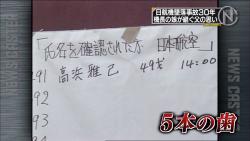 日航機墜落事故30年
機長の娘が継ぐ父の思い
「氏名を確認された方 日本航空」
91 高浜雅己 49才 14:00
92
93
94
5本の歯
NEWS CAST